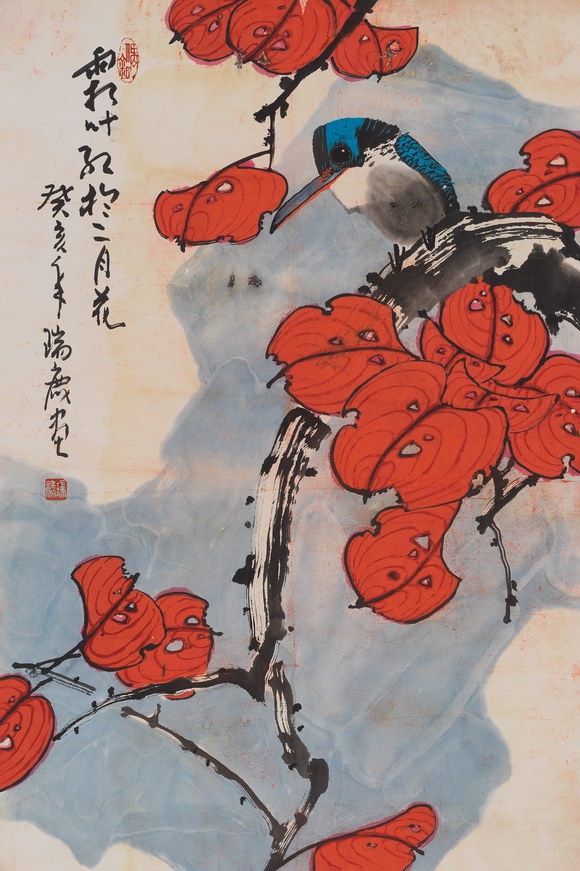 霜叶红於二月花
癸亥年瑞庭画